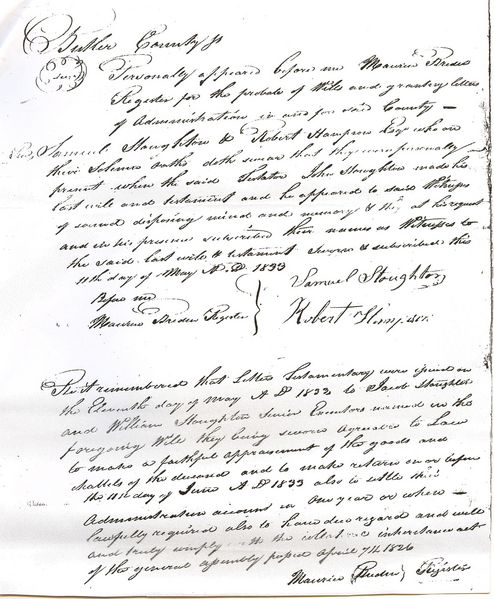 Butler County ss
Seal
Personally appeared before me Maurice Bredin
Register for the probate of Wills and granting letters
of Administration in and for said County —
Samuel Stoughton & Robert Hampson Esq who on
their Solemn Oaths doth swear that they were personally
present when the said Testator John Stoughton made his
last will and testament and he appeared to said Witness
of sound disposing mind and memory & they at his request
and in his presence subscribed their names as Witnesses to
the said last will & testament Sworn & subscribed this
11th day of May A.D 1833
Before me
Maurice Bredin Register
Samuel Stoughton
Robert Hampson
Be it remembered that Letters Testamentary were issued on
the Eleventh day of May A D 1833 to Jacob Stoughton
and William Stoughton Senior Executors named in the
foregoing Will they being sworn Agreeable to Law
to make a faithful appraisement of the goods and
chattels of the deceased and to make return on or before
the 11th day of June A D 1833 also to settle their
Administration account in one year or when —
lawfully required also to have due regard and well
and truly comply with the collateral inheritance act
of the general assembly passed April 7th 1826
Maurice Bredin Register